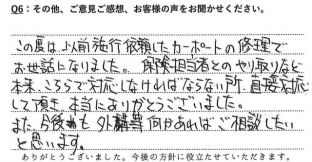 Q6：その他、ご意見ご感想、お客様の声をお聞かせください。
この度は、以前施行依頼したカーポートの修理で
お世話になりました。保険担当者とのやり取りなど
本来、こちらで対応しなければならない所、直接対応
して頂き、本当にありがとうございました。
また、今後も外構等何かあればご相談したい
と思います。
ありがとうございました。今後の方針に役立たせていただきます。